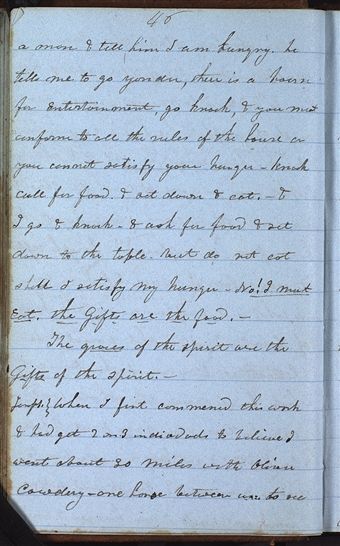 46
a man & tell him I am hungry. he
tells me to go yonder, there is a house
for Entertainment, go knock, & you must
conform to all the rules of the house or
you cannot satisfy your hunger - knock
call for food. & set down & eat. - &
I go & knock - & ask for food & set
down to the table. but do not eat
shall I satisfy my hunger - No! I must
Eat. the Gifts are the food. -
The graces of the spirit are the
Gifts of the spirit. -
when I first commenced this work
& had got 2 or 3 individuals to believe I
went about 30 miles with Oliver
Cowdery - one horse between us to see